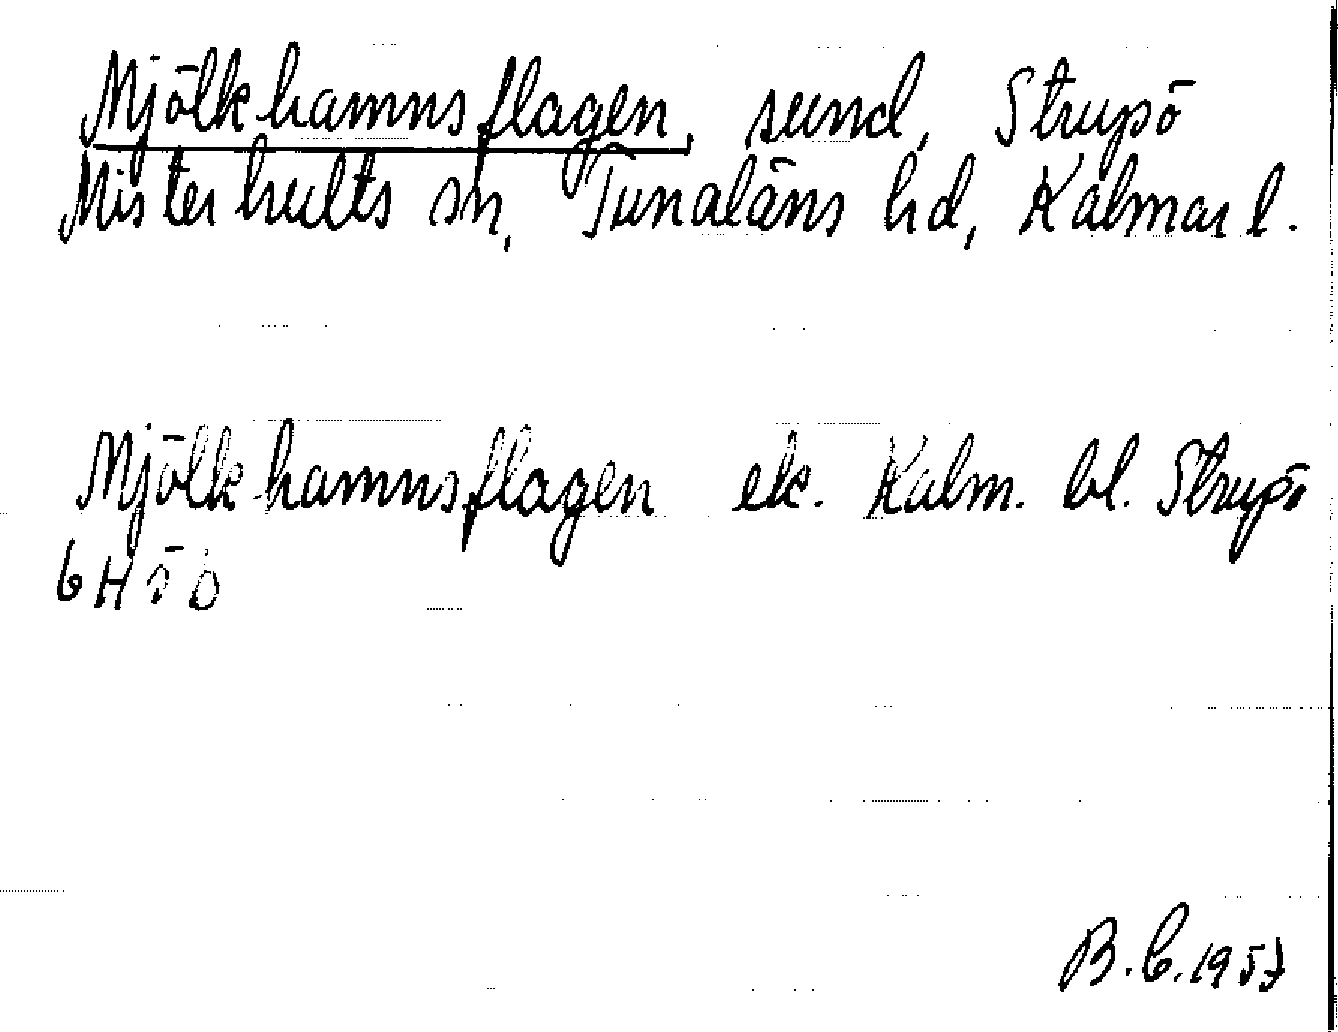 Mjölkhamnsflagen, sund, Strupö
Misterhults sn, Tunaläns hd, Kalmar l.
Mjölkhamnsflagen ek. Kalm. bl. Strupö
6H5ö
B.C. 1957